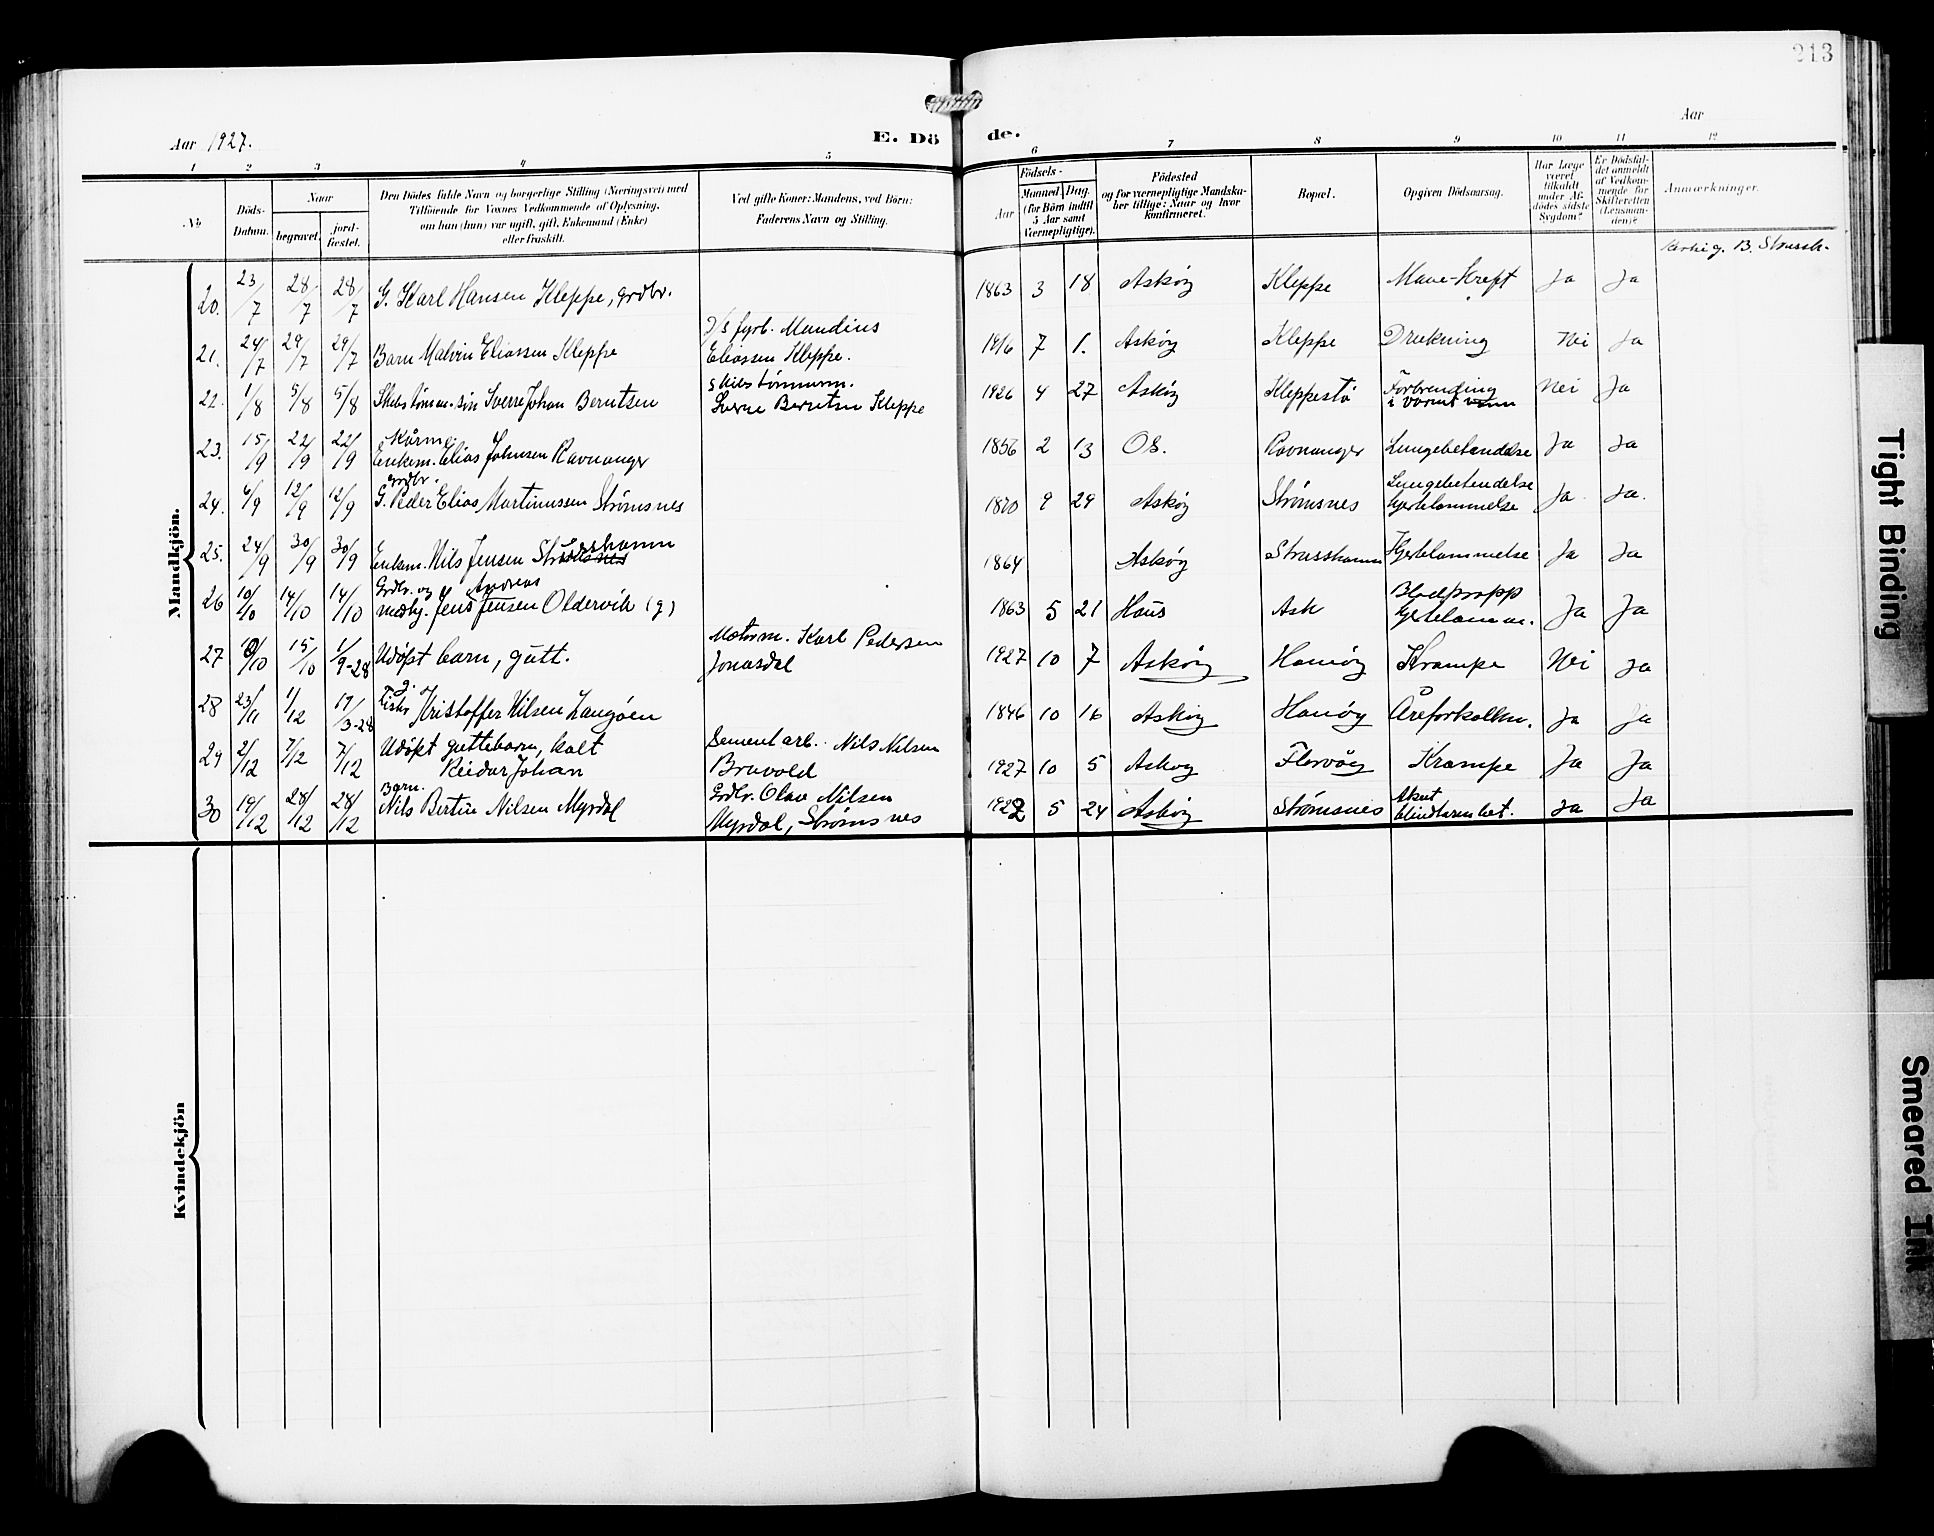 213
Aar 1927.
E. Dö
de.
Aar
1 2 3 4 5 6 7 8 9 10 11 12
No
Döds-Datum.
Naar
begravet.
jord-fæstet.
Den Dödes fulde Navn og borgerlige Stilling (Næringsvei) med
Tilföiende for Voxnes Vedkommende af Oplysning,
om han (hun) var ugift, gift, Enkemand (Enke)
eller fraskilt.
Ved gifte Koner: Mandens, ved Börn:
Faderens Navn og Stilling.
Födsels-
Aar
Maaned. Dag.
(for Börn indtil
5 Aar samt
Værnepligtige).
Födested
og for værnepligtige Mandska-
ber tillige: Naar og hvor
konfirmeret.
Bopæl.
Opgiven Dödsaarsag.
Har Læge
været
tilkaldt
under Af-
dödes sidste
Sygdom?
Er Dödsfal-
det anmeldt
af Vedkom-
mende for
Skifteretten
(Lensman-
den)?
Anmærkninger.
Mandkjön.
20. 23/7 28/7 28/7 G. Karl Hansen Kleppe, grdbr. 1863 3 18 Askøy Kleppe Mave-Kreft Ja Ja
21. 24/7 29/7 29/7 Barn Malvin Eliassen Kleppe D/s fyrb. Mandius
Eliassen Kleppe. 1916 7 1. Askøy Kleppe Drukning Nei Ja
22. 1/8 5/8 5/8 Skibstømm. søn Sverre Johan Berntsen Skibstømmerm.
Sverre Berntsen Kleppe 1926 4 27 Askøy Kleppestø Forbrending
i varmt vann Nei Ja
23. 15/9 22/9 22/9 Kårm.
Enkem. Elias Johnsen Ravnanger 1856 2 13 Os. Ravnanger Lungebetendelse Ja Ja
24. 6/9 12/9 12/9 grdbr.
G. Peder Elias Martinussen Strømsnes 1870 9 29 Askøy Strømsnes Lungebetendelse
hjertelammelse Ja Ja.
25. 24/9 30/9 30/9 Enkem. Nils Jensen Strusshamn 1864 Askøy Strusshamn Hjertelammelse Ja Ja
26 10/10 14/10 14/10 Grdbr. og Andreas
Jens Jensen Oldervik (g) 1863 5 21 Haus Ask Blodpropp
hjertelamm. Ja Ja
27 10/10 15/10 1/9-28 Udøpt barn, gutt. Motorm. Karl Pedersen
Jonasdal 1927 10 7 Askøy Hanøy Krampe Nei Ja
28 23/11 1/12 17/3-28 g.
Kristoffer Nilsen Langøen 1846 10 16 Askøy Hanøy Åreforkalkn. Ja Ja
29 2/12 7/12 7/12 Udøpt guttebarn, kalt
Reidar Johan Sementarb. Nils Nilsen
Bruvold 1927 10 5 Askøy Florvåg Krampe Ja Ja
30 19/12 28/12 28/12 Barn.
Nils Bertin Nilsen Myrdal Grdbr. Olav Nilsen
Myrdal, Strømsnes 1922 5 24 Askøy Strømsnes Akut
blindtarmbet. Ja Ja
Kvindekjön
Tight Binding
Smeared Ink